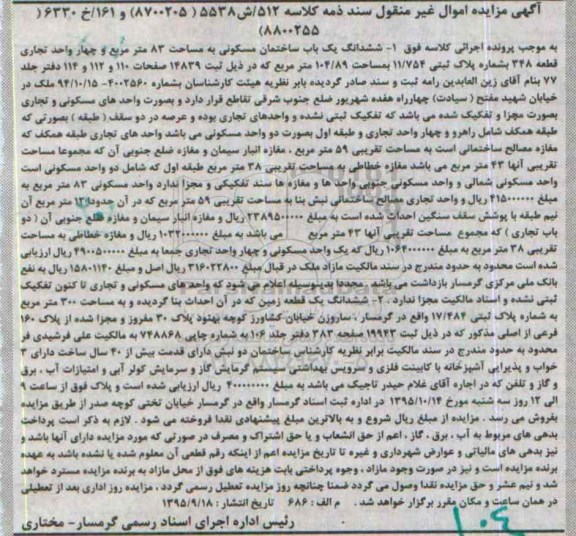 آگهی مزایده اموال غیر منقول سند ذمه کلاسه ۵۱۲/ش۵۵۳۸ (۸۷۰۰۲۰۵) و ۱۶۱/خ ۶۳۳۰ (
۸۸۰۰۲۵۵)
به موجب پرونده اجرائی کلاسه فوق ۱- ششدانگ یک باب ساختمان مسکونی به مساحت ۸۳ متر مربع و چهار واحد تجاری
قطعه ۳۴۸ بشماره پلاک ثبتی ۱۱/۷۵۴ بمساحت ۱۰۴/۸۹ متر مربع که در ذیل ثبت ۱۴۸۳۹ صفحات ۱۱۰ و ۱۱۲ و ۱۱۴ دفتر جلد
۷۷ بنام آقای زین العابدین رامه ثبت و سند صادر گردیده بابر نظریه هیئت کارشناسان بشماره ۴۰۰۲۵۶۰-۹۴/۱۰/۱۵ ملک در
خیابان شهید مفتح (سیادت) چهارراه هفده شهریور ضلع جنوب شرقی تقاطع قرار دارد و بصورت واحد های مسکونی و تجاری
بصورت مجزا و تفکیک شده می باشد که تفکیک ثبتی نشده و واحدهای تجاری بوده و عرصه در دو سقف (طبقه) بصورتی که
طبقه همکف شامل راهرو و چهار واحد تجاری و طبقه اول بصورت دو واحد مسکونی می باشد واحد های تجاری طبقه همکف که
مغازه مصالح ساختمانی است به مساحت تقریبی ۵۹ متر مربع ، مغازه انبار سیمان و مغازه ضلع جنوبی آن که مجموعا مساحت
تقریبی آنها ۴۳ متر مربع می باشد مغازه خطاطی به مساحت تقریبی ۳۸ متر مربع طبقه اول که شامل دو واحد مسکونی است
واحد مسکونی شمالی و واحد مسکونی جنوبی واحد ها و مغازه ها سند تفکیکی و مجزا ندارد واحد مسکونی ۸۳ متر مربع به
مبلغ ۴۱۵۰۰۰۰۰۰ ریال و واحد تجاری مصالح ساختمانی نبش بنا به مساحت تقریبی ۵۹ متر مربع که در آن حدودا ۱۲ متر مربع آن
نیم طبقه با پوشش سقف سنگین احداث شده است به مبلغ ۲۳۸۹۵۰۰۰۰۰ ریال و مغازه انبار سیمان و مغازه ضلع جنوبی آن ( دو
باب تجاری ) که مجموع مساحت تقریبی آنها ۴۳ متر مربع می باشد به مبلغ ۱۰۳۲۰۰۰۰۰۰ ریال و مغازه خطاطی به مساحت
تقریبی ۳۸ متر مربع به مبلغ ۱۰۶۴۰۰۰۰۰۰ ریال که یک واحد مسکونی و چهار واحد تجاری جمعا به مبلغ ۴۹۰۰۵۰۰۰۰۰ ریال ارزیابی
شده است محدود به حدود مندرج در سند مالکیت مازاد ملک در قبال مبلغ ۳۱۶۰۲۲۸۰۰ ریال اصل و مبلغ ۱۵۸۰۱۱۴۰ ریال به نفع
بانک ملی مرکزی گرمسار بازداشت می باشد . مجددا بدینوسیله اعلام می شود که واحد های مسکونی و تجاری تا کنون تفکیک
ثبتی نشده و اسناد مالکیت مجزا ندارد . ۲- ششدانگ یک قطعه زمین که در آن احداث بنا گردیده و به مساحت ۳۰۰ متر مربع
به شماره پلاک ثبتی ۱۷/۴۸۴ واقع در گرمسار ، ساروزن خیابان کشاورز کوچه بهنود پلاک ۳۰ مفروز و مجزا شده از پلاک ۱۶۰
فرعی از اصلی مذکور که در ذیل ثبت ۱۹۹۴۳ صفحه ۳۸۳ دفتر جلد ۱۰۴ به شماره چاپی ۷۴۸۸۶۸ به مالکیت علی فرشیدی فر
محدود به حدود مندرج در سند مالکیت برابر نظریه کارشناس ساختمان دو نبش دارای قدمت بیش از ۴۰ سال ساخت دارای ۳
خواب و پذیرایی آشپزخانه با کابینت فلزی و سرویس بهداشتی ، سیستم گرمایش گاز و سرمایش کولر آبی و امتیازات آب ، برق
و گاز و تلفن که در اجاره آقای غلام حیدر تاجیک می باشد به مبلغ ۴۰۰۰۰۰۰۰۰ ریال ارزیابی شده است و پلاک فوق از ساعت ۹
الی ۱۲ روز سه شنبه مورخ ۱۳۹۵/۱۰/۱۴ در اداره ثبت اسناد گرمسار واقع در گرمسار خیابان تختی کوچه صدر از طریق مزایده
بفروش می رسد . مزایده از مبلغ ریال شروع و به بالاترین مبلغ پیشنهادی نقدا فروخته می شود . لازم به ذکر است پرداخت
بدهی های مربوط به آب ، برق ، گاز ، اعم از حق انشعاب و یا حق اشتراک و مصرف در صورتی که مورد مزایده دارای آنها باشد و
نیز بدهی های مالیاتی و عوارض شهرداری و غیره تا تاریخ مزایده اعم از اینکه رقم قطعی آن معلوم شده یا نشده باشد به عهده
برنده مزایده است و نیز در صورت وجود مازاد ، وجوه پرداختی بابت هزینه های فوق از محل مازاد به برنده مزایده مسترد خواهد
شد و نیم عشر و حق مزایده نقدا وصول می گردد ضمنا چنانچه روز مزایده تعطیل رسمی گردد ، مزایده روز اداری بعد از تعطیلی
در همان ساعت و مکان مقرر برگزار خواهد شد . م الف : ۶۸۶ تاریخ انتشار : ۱۳۹۵/۹/۱۸
رئیس اداره اجرای اسناد رسمی گرمسار- مختاری
۱۰۴